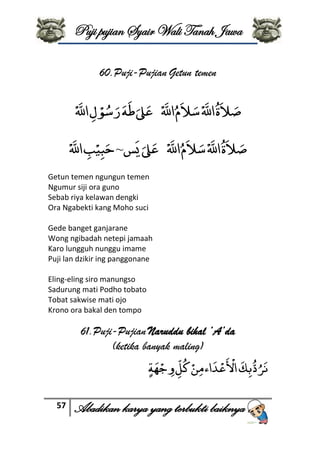 Puji pujian Syair Wali Tanah Jawa
60.Puji-Pujian Getun temen
صَلَاةُ اللهِ سَلَامُ اللهِ عَلَى طَهَ رَسُوْلِ اللهِ
صَلَاةُ اللهِ سَلَامُ اللهِ عَلَى يَس~ حَبِيْبِ اللهِ
Getun temen ngungun temen
Ngumur siji ora guno
Sebab riya kelawan dengki
Ora Ngabekti kang Moho suci
Gede banget ganjarane
Wong ngibadah netepi jamaah
Karo lungguh nunggu imame
Puji lan dzikir ing panggonane
Eling-eling siro manungso
Sadurung mati Podho tobato
Tobat sakwise mati ojo
Krono ora bakal den tompo
61.Puji-Pujian Naruddu bikal 'A'da
(ketika banyak maling)
نَرُدُّ بِكَ الْأَعْدَاء مِنْ كُلِّ وِجْهَةٍ
57 Abadikan karya yang terbukti baiknya